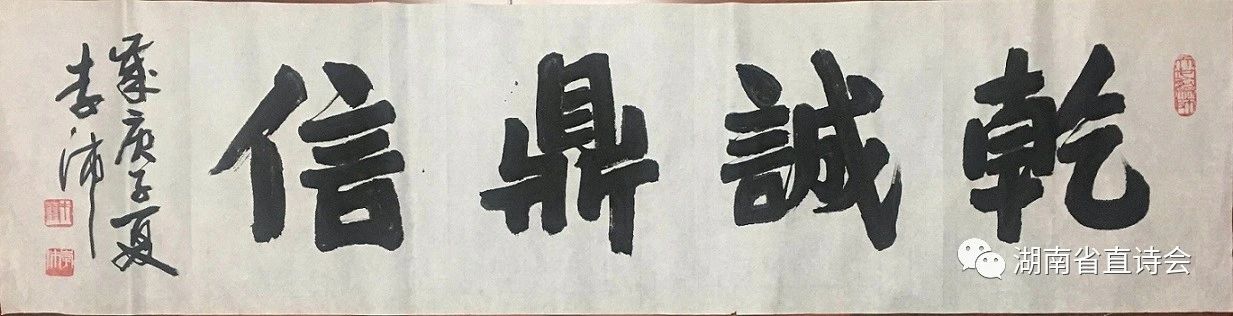 乾誠鼎信
歲庚子夏
李沛
湖南省直诗会